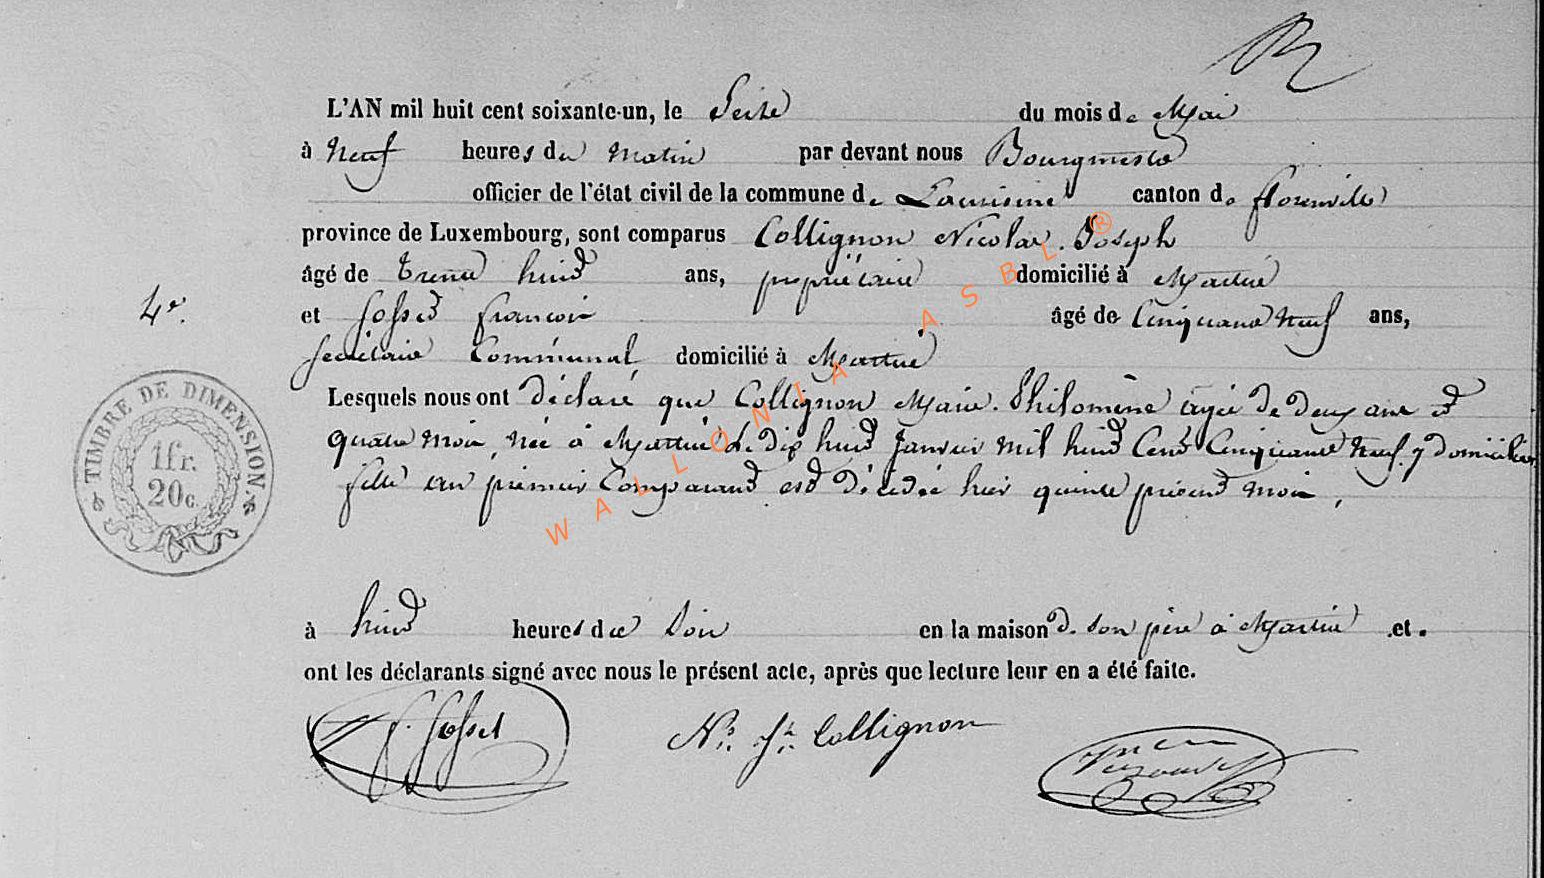 L'AN mil huit cent soixante-un, le Seize du mois de Mai
à Neuf heures du matin par devant nous Bourgmestre
officier de l'état civil de la commune de canton de florenville
province de Luxembourg, sont comparus Collignon Nicolas. Joseph
âgé de trente huit ans, propriétaire domicilié à Martué
et fosset françois âgé de Cinquante neuf ans,
Secrétaire Communal domicilié à Martué
4e.
Lesquels nous ont déclaré que Collignon Marie. Philomène agée de deux ans et
quatre mois, née à Martué le dix huit Janvier mil huit Cent Cinquante neuf. y domiciliée
fille au premier Comparant est décédée hier quinze présent mois,
TIMBRE DE DIMENSION.
1fr.
20c.
à huit heures du soir en la maison de son père à Martué et.
ont les déclarants signé avec nous le présent acte, après que lecture leur en a été faite.
f. fosset
Ns. Jh. Collignon
WALLONIA ASBL ®